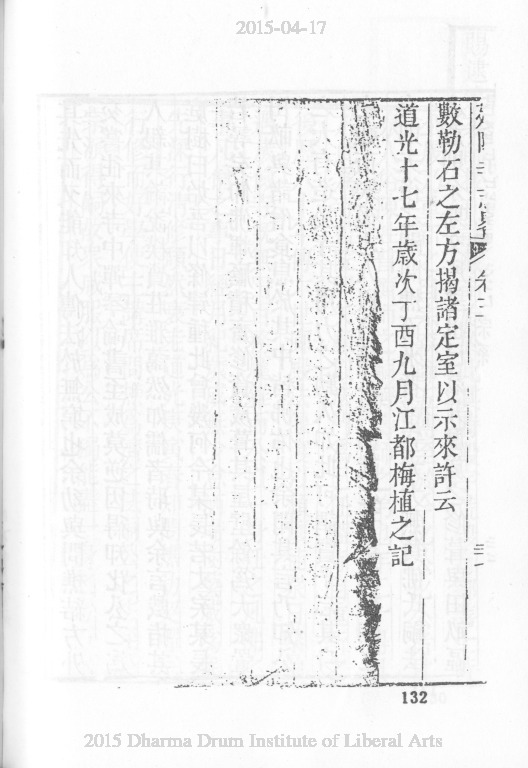 2015-04-17
數勒石之左方揭諸定室以示來許云
道光十七年歲次丁酉九月江都梅植之記
132
2015 Dharma Drum Institute of Liberal Arts